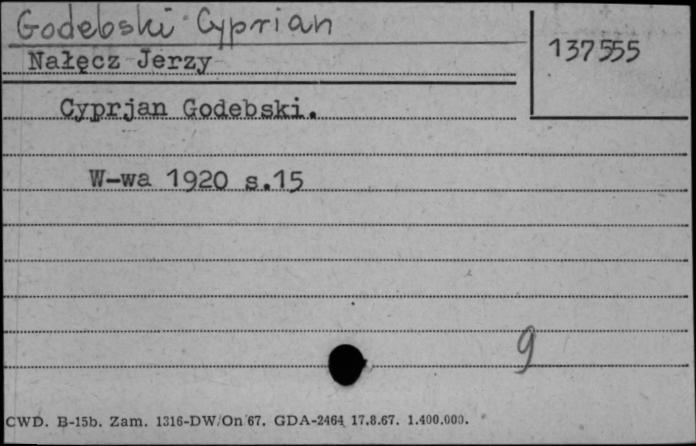 Godebski Cyprian
137555
Nałęcz Jerzy
Cyprjan Godebski.
W-wa 1920 s.15
9
CWD. B-15b. Zam. 1316-DW/On 67. GDA-2464 17.8.67. 1.400.000.